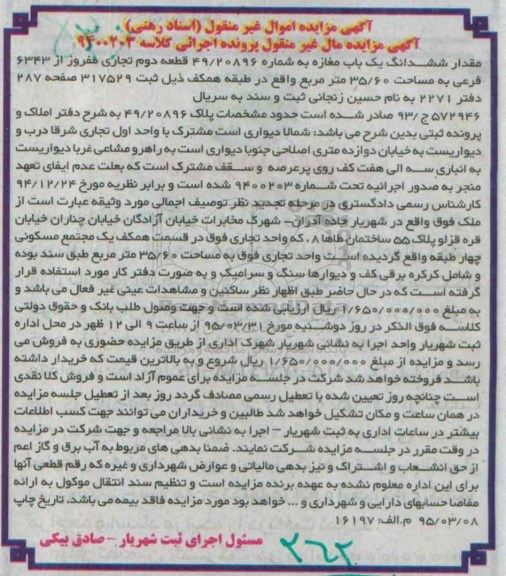 آگهی مزایده اموال غیر منقول (اسناد رهنی)
آگهی مزایده مال غیر منقول پرونده اجرائی کلاسه ۹۴۰۰۲۰۳
مقدار ششدانگ یک باب مغازه به شماره ۴۹/۲۰۸۹۶ قطعه دوم تجاری مفروز از ۶۳۴۳
فرعی به مساحت ۳۵/۶۰ متر مربع واقع در طبقه همکف ذیل ثبت ۳۱۷۵۲۹ صفحه ۲۸۷
دفتر ۲۲۷۱ به نام حسین زنجانی ثبت و سند به سریال
۵۷۲۹۴۶ ج/۹۲ صادر شده است حدود مشخصات پلاک ۴۹/۲۰۸۹۶ به شرح دفتر املاک و
پرونده ثبتی بدین شرح می باشد: شمالا دیواری است مشترک با واحد اول تجاری شرقا درب و
دیواریست به خیابان دوازده متری اصلاحی جنوبا دیواری است به راهرو مشاعی غربا دیواریست
به انباری سه الی هفت کف روی پرعرصه و سقف مشترک است که بعلت عدم ایفای تعهد
منجر به صدور اجرائیه تحت شماره ۹۴۰۰۲۰۳ شده است و برابر نظریه مورخ ۹۴/۱۲/۲۴
کارشناس رسمی دادگستری در مرحله تجدید نظر توصیف اجمالی مورد وثیقه عبارت است از
ملک فوق واقع در شهریار جاده آدران- شهرک مخابرات خیابان آزادگان خیابان چناران خیابان
قره قزلو پلاک ۵۵ ساختمان طاها ۸، که واحد تجاری فوق در قسمت همکف یک مجتمع مسکونی
چهار طبقه واقع گردیده است واحد تجاری فوق به مساحت ۳۵/۶۰ متر مربع طبق سند بوده
و شامل کرکره برقی کف و دیوارها سنگ و سرامیک و به صورت دفتر کار مورد استفاده قرار
گرفته است که در حال حاضر طبق اظهار نظر ساکنین و مشاهدات عینی غیر فعال می باشد و
به مبلغ ۱/۶۵۰/۰۰۰/۰۰۰ ریال ارزیابی شده است و جهت وصول طلب بانک و حقوق دولتی
کلاسه فوق الذکر در روز دوشنبه مورخ ۹۵/۰۳/۳۱ از ساعت ۹ الی ۱۲ ظهر در محل اداره
ثبت شهریار واحد اجرا به نشانی شهریار شهرک اداری از طریق مزایده حضوری به فروش می
رسد و مزایده از مبلغ ۱/۶۵۰/۰۰۰/۰۰۰ ریال شروع و به بالاترین قیمت که خریدار داشته
باشد فروخته خواهد شد شرکت در جلسه مزایده برای عموم آزاد است و فروش کلا نقدی
است چنانچه روز تعیین شده با تعطیل رسمی مصادف گردد روز بعد از تعطیل جلسه مزایده
در همان ساعت و مکان تشکیل خواهد شد طالبین و خریداران می توانند جهت کسب اطلاعات
بیشتر در ساعات اداری به ثبت شهریار – اجرا به نشانی بالا مراجعه و جهت شرکت در مزایده
در وقت مقرر در جلسه مزایده شرکت نمایند. ضمنا بدهی های مربوط به آب برق و گاز اعم
از حق انشعاب و اشتراک و نیز بدهی مالیاتی و عوارض شهرداری و غیره که رقم قطعی آنها
برای این اداره معلوم نشده به عهده برنده مزایده است و تنظیم سند انتقال موکول به ارائه
مفاصا حسابهای دارایی و شهرداری و ... خواهد بود مورد مزایده فاقد بیمه می باشد. تاریخ چاپ
۹۵/۰۳/۰۸ م.الف: ۱۶۱۹۷
مسئول اجرای ثبت شهریار – صادق بیکی
۲۶۲